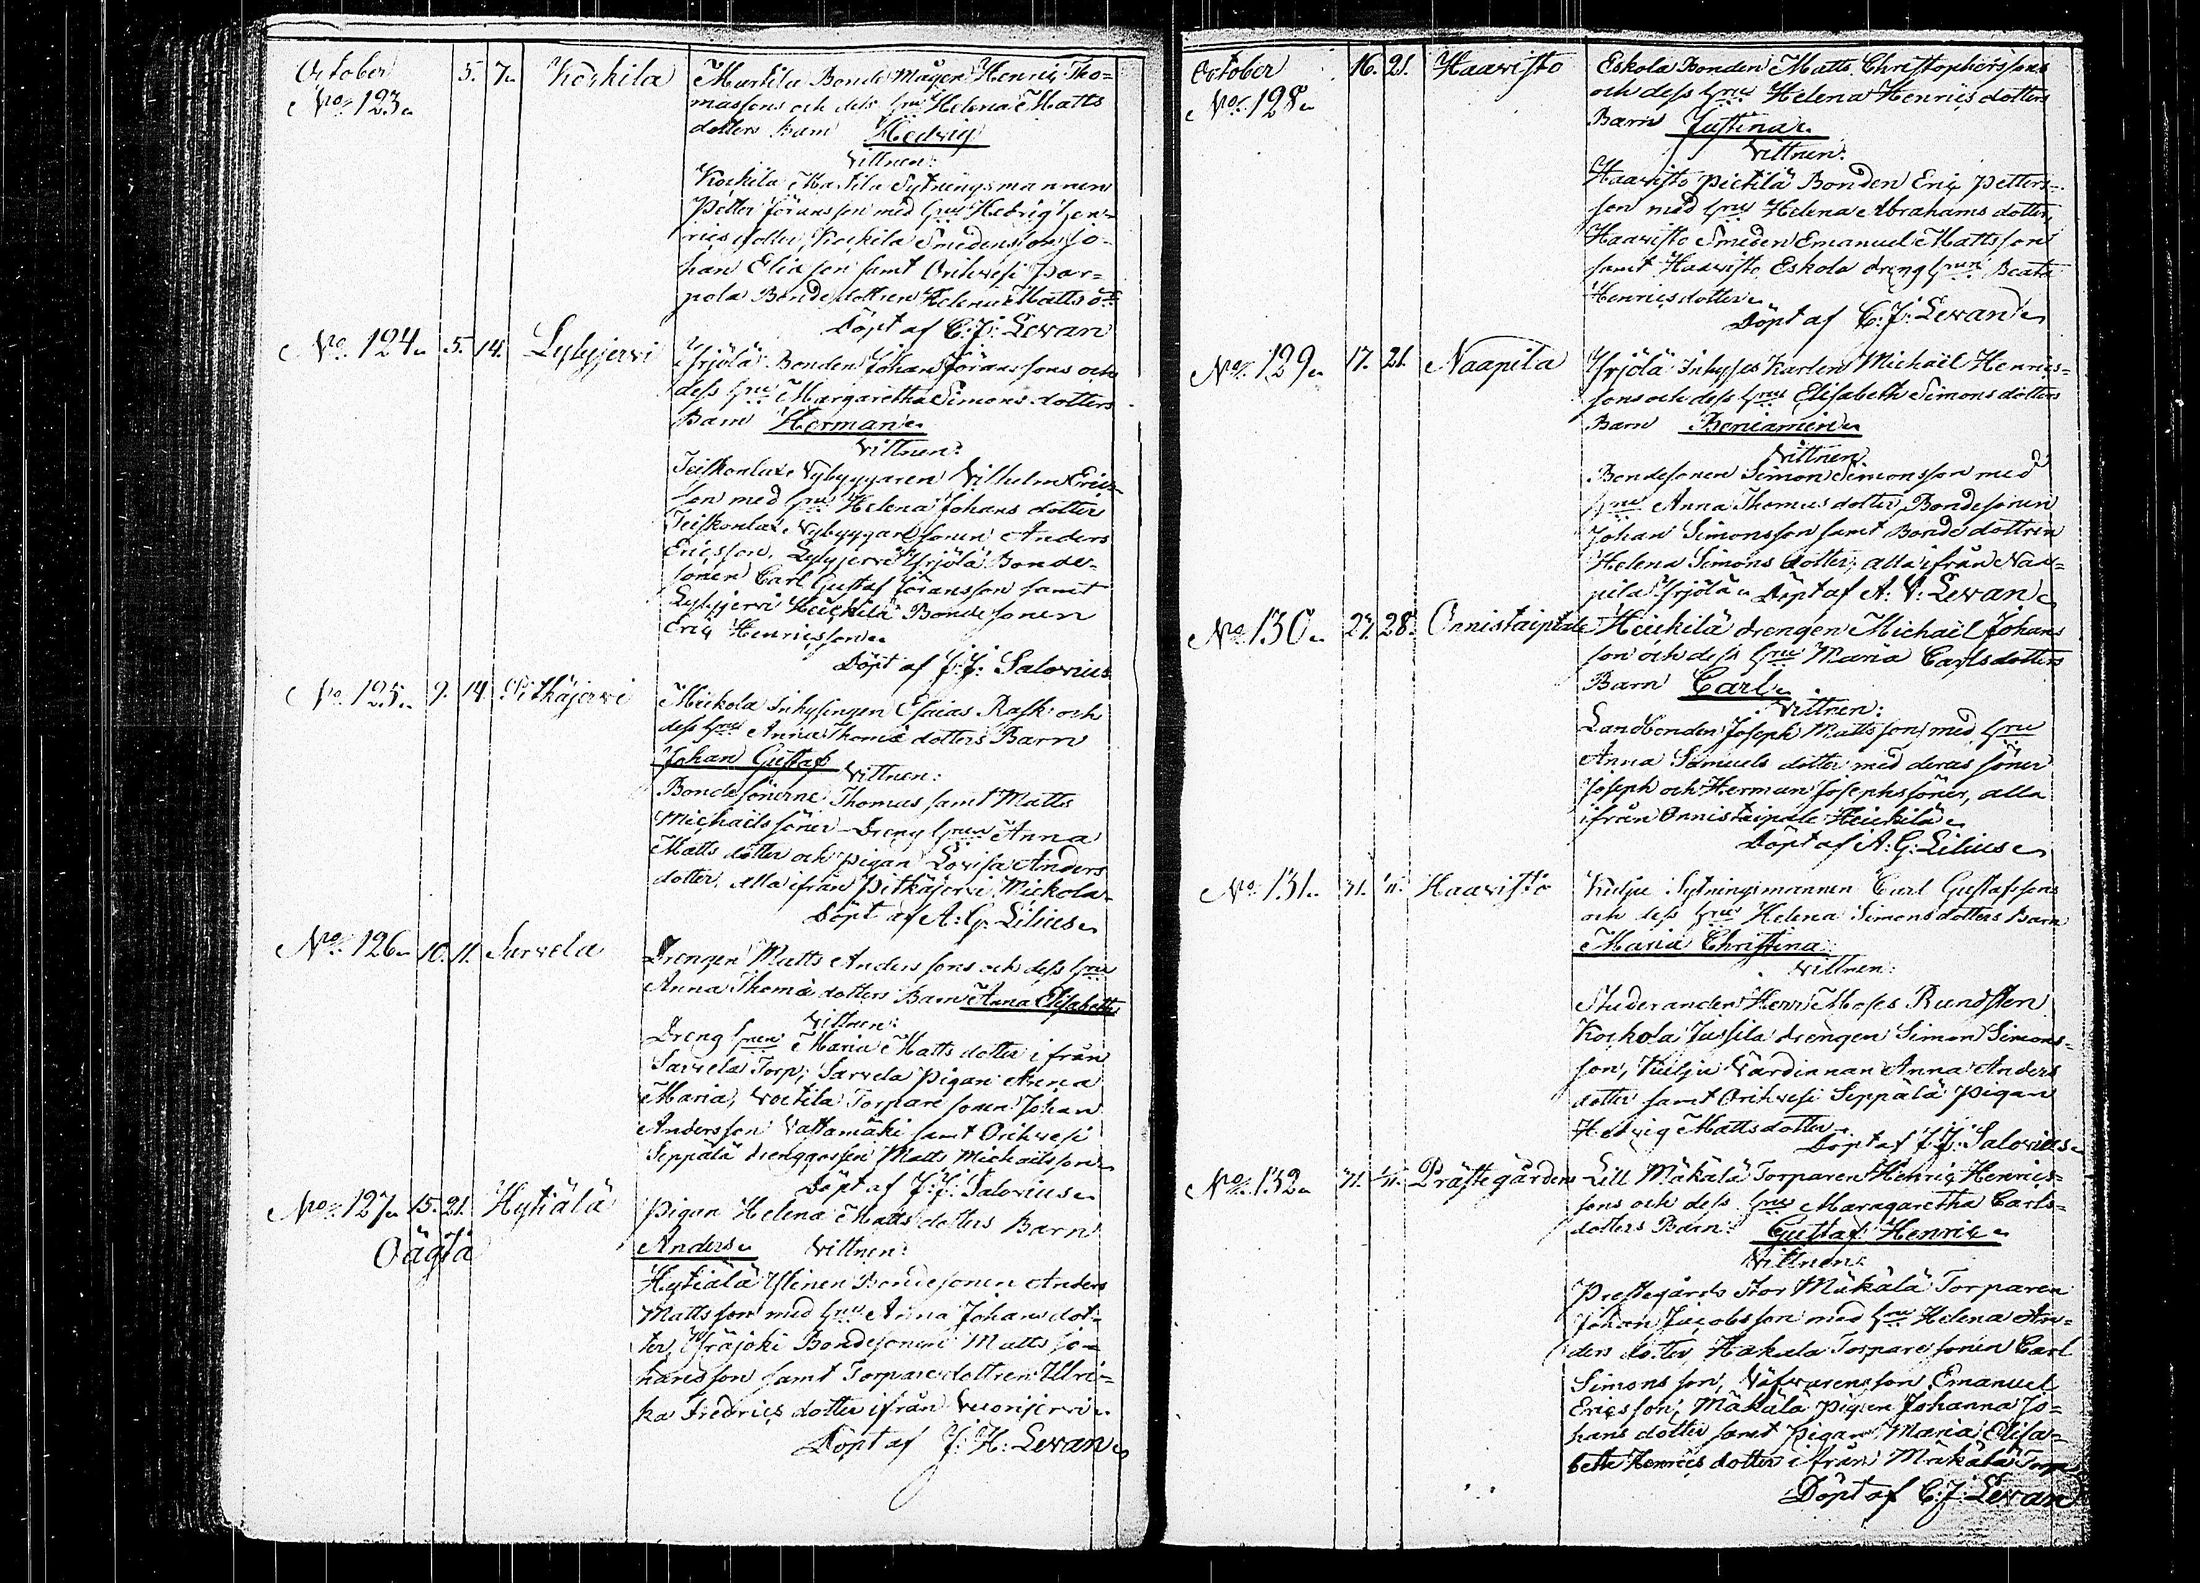 October 5. 7. Koskila Markila Bonde Mågen Henric Tho=
No. 123. massons och dess hru Helena Matts
dotters barn Hedvig
Vittnen:
Koskila Markila Sytningsmannen
Petter Göransson med hru Hedvig Hen=
rics dotter, Koskila Smedens son Jo=
han Eliasson samt Orihvesi Par=
pola Bonde dottren Helena Matts dr
Döpt af C: J: Levan
No. 124. 5. 14. Lylyjervi Yrjölä Bonden Johan Göranssons och
dess hru Margaretha Simons dotters
Barn Herman
Vittnen:
Teiskonlax Nybyggaren Vilhelm Erics
son med hru Helena Johans dotter
Teiskonlax Nybyggare sonen Anders
Ericsson, Lylyjervi Yrjölä Bonde=
sonen Carl Gustaf Göransson samt
Lylyjervi Heickilä Bondesonen
Eric Henricsson
Döpt af J: J: Salovius
No. 125. 9. 14. Pitkäjervi Mickola Inhysingen Esaias Rask och
dess hru Anna Thomæ dotters Barn
Johan Gustaf Vittnen:
Bondesönerne Thomas samt Matts
Michaels söner Dreng hrun Anna
Matts dotter och pigan Lovisa Anders
dotter, alla ifrån Pitkäjervi Mickola
Döpt af A: G: Lilius
No. 126. 10. 11. Sarvela Drengen Matts Anders sons och dess hru
Anna Thomæ dotters Barn Anna Elisabeth
Vittnen:
Dreng hrun Maria Matts dotter ifrån
Sarvela Torp, Sarvela pigan Anna
Maria, Voitila Torpare sonen Johan
Andersson Vattamäki samt Orihvesi
Seppälä drenggossen Matts Michaelsson
Döpt af J: J: Salovius
No. 127. 15. 21. Hytiälä Pigan Helena Matts dotters Barn
Oägta
Anders Vittnen:
Hytiälä Ylinen Bondesonen Anders
Mattsson med hru Anna Johans dot=
ter, Yräjoki Bondesonen Matts Jo=
hansson samt Torpare dottren Ulri=
ka Fredrics dotter ifrån Vuorijervi
Döpt af J: H: Levan
October 16. 21. Haavisto Eskola Bonden Matts Christopherssons
No. 128. och dess hru Helena Henrics dotters
Barn Justina
Vittnen:
Haavisto Pietilä Bonden Eric Petters=
son med hru Helena Abrahams dotter,
Haavisto Smeden Emanuel Mattsson
samt Haavisto Eskola dreng hrun Beata
Henricsdotter
Döpt af C: J: Levan
No. 129. 17. 21. Naapila Yrjölä Inhyses Karlen Michaël Henrics=
sons och dess hru Elisabeth Simons dotters
Barn Beniamin
Vittnen
Bondesonen Simon Simonsson med
hru Anna Thomas dotter, Bondesonen
Johan Simonsson samt Bonde dottren
Helena Simons dotter, alla ifrån Naa=
pila Yrjölä Döpt af A: V: Levan
No. 130. 27. 28. Onnistaipale Heickilä drengen Michaël Johans
son och dess hru Maria Carlsdotters
Barn Carl
Vittnen:
Landbonden Joseph Mattsson med hru
Anna Samuels dotter med deras söner
Joseph och Herman Josephs söner, alla
ifrån Onnistaipale Heickilä
Döpt af A: G: Lilius
No. 131. 31. 1/11. Haavisto Kulju Sytningsmannen Carl Gustafssons
och dess hru Helena Simonsdotters Barn
Maria Christina
Vittnen:
Studeranden Herr Moses Rundsten
Koskola Jussila drengen Simon Simons=
son, Kulju Värdinnan Anna Anders
dotter samt Orihvesi Seppälä Pigan
Hedvig Mattsdotter
Döpt af J: J: Salovius
No. 132. 31. 1/11. Prästegården Lill Mäkälä Torparen Henric Henrics=
sons och dess hru Maragaretha Carls=
dotters Barn Gustaf Henric
Vittnen:
Prestegårds Stor Mäkälä Torparen
Johan Jacobsson med hru Helena An=
ders dotter, Hakala Torpare sonen Carl
Simons son, Väfvarens son Emanuel
Ericsson, Mäkälä Pigan Johanna Jo=
hans dotter samt Pigan Maria Elisa=
beth Henrics dotter ifrån Mäkälä Torp
Döpt af C: J: Levan